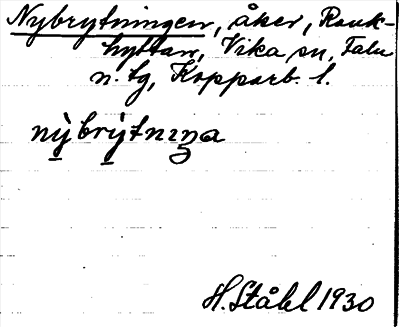 Nybrytningen, åker, Rank-
hyttan, Vika sn, Falu
n. tg, Kopparb. l.
nỳbrẏtnɪŋa
H. Ståhl 1930